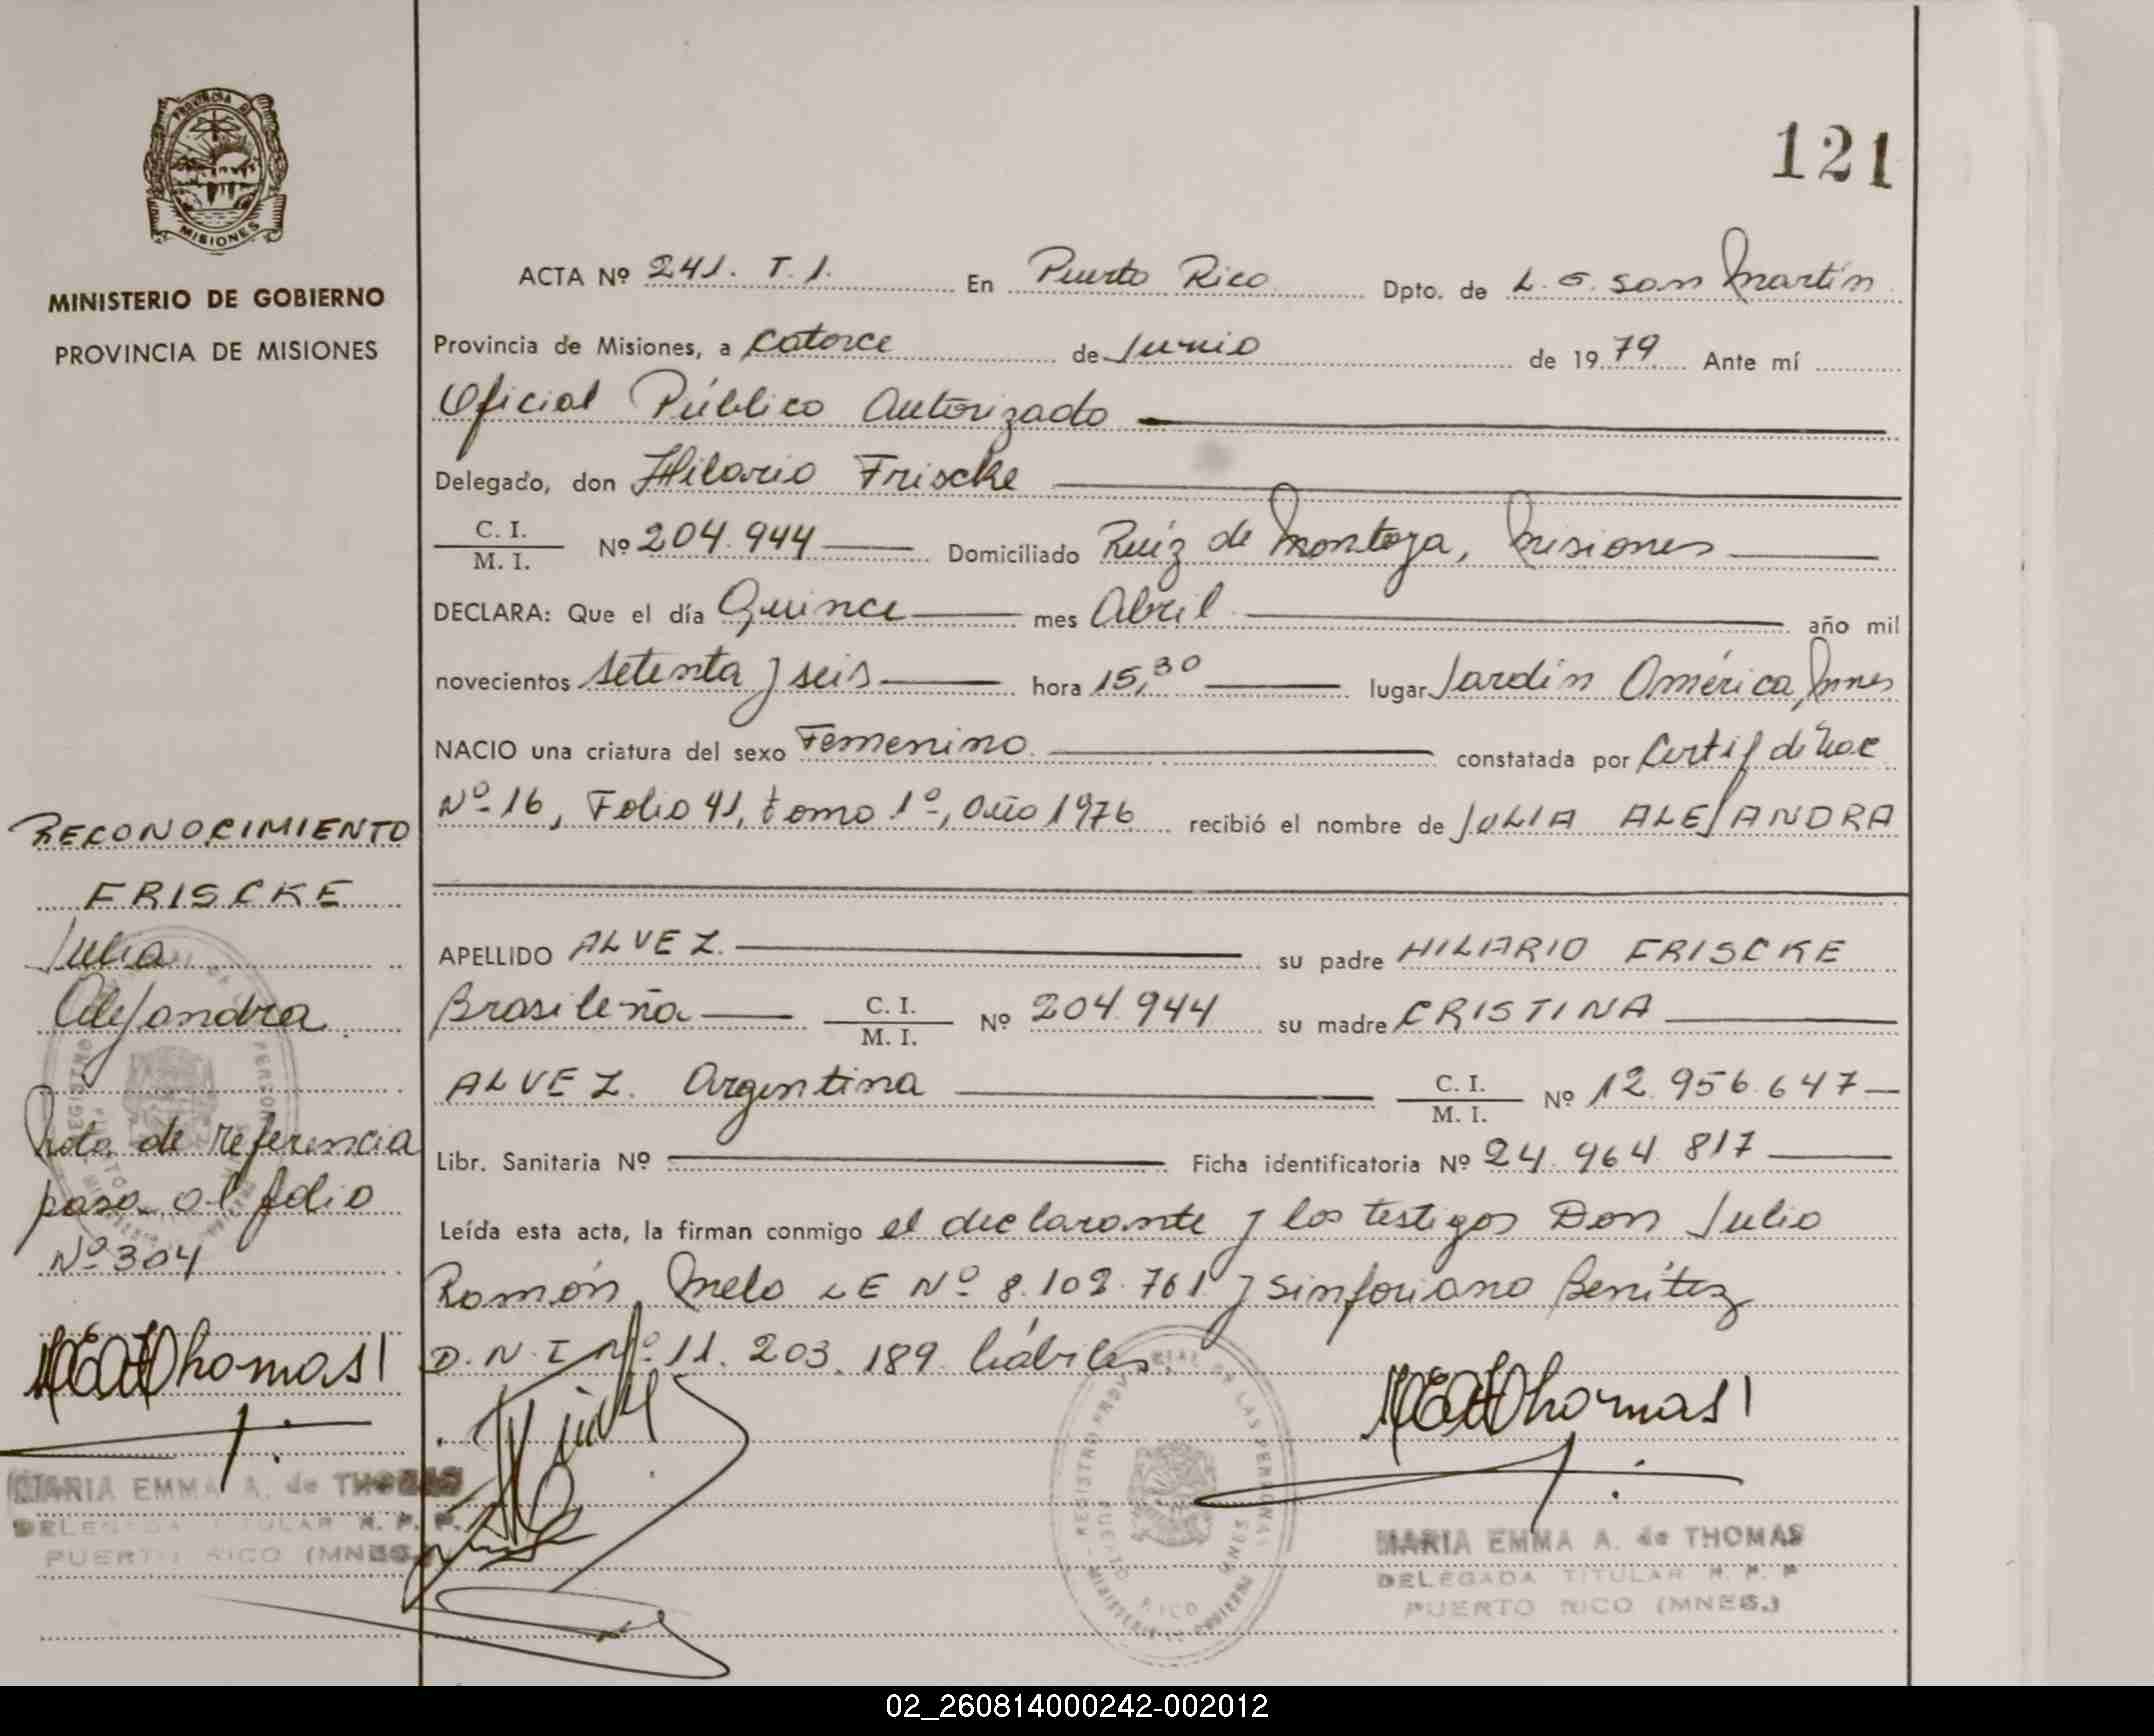 121
PROVINCIA DE
MISIONES
MINISTERIO DE GOBIERNO
PROVINCIA DE MISIONES
RECONOCIMIENTO
FRISCKE
Julia
Alejandra
Nota de referencia
pasa al folio
Nº 304
MEAdThomas
MARIA EMMA A. de THOMAS
DELEGADA TITULAR R. P. P.
PUERTO RICO (MNES.)
ACTA Nº 241. T. 1. En Puerto Rico Dpto. de L. G. San Martín
Provincia de Misiones, a catorce de Junio de 1979 Ante mí
Oficial Público Autorizado
Delegado, don Hilario Friscke
C. I. / M. I. Nº 204.944 Domiciliado Ruiz de Montoya, Misiones
DECLARA: Que el día Quince mes Abril año mil
novecientos setenta y seis hora 15,30 lugar Jardín América, Mnes
NACIO una criatura del sexo Femenino constatada por Certif de Nac
Nº 16, Folio 41, tomo 1º, Año 1976 recibió el nombre de JULIA ALEJANDRA
APELLIDO ALVEZ. su padre HILARIO FRISCKE
Brasileña C. I. / M. I. Nº 204.944 su madre CRISTINA
ALVEZ. Argentina C. I. / M. I. Nº 12.956.647
Libr. Sanitaria Nº Ficha identificatoria Nº 24.964.817
Leída esta acta, la firman conmigo el declarante y los testigos Don Julio
Ramón Melo LE Nº 8.102.761 y Sinforiano Benítez
D.N.I Nº 11.203.189 hábiles.
MEAdThomas
REGISTRO PROVINCIAL DE LAS PERSONAS
PUERTO RICO MNES
MINISTERIO DE GOBIERNO
MARIA EMMA A. de THOMAS
DELEGADA TITULAR R. P. P
PUERTO RICO (MNES.)
02_260814000242-002012